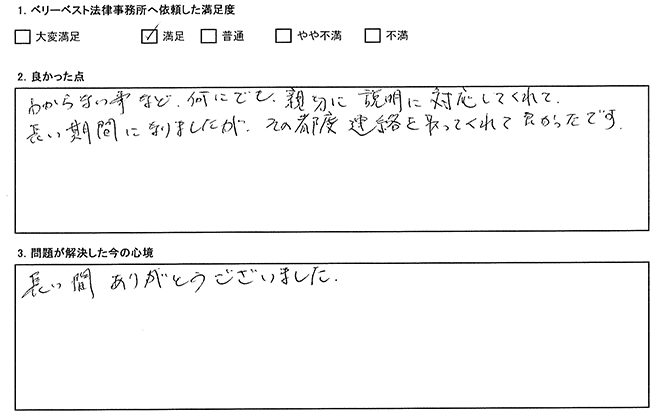 1. ベリーベスト法律事務所へ依頼した満足度
□ 大変満足 ☑ 満足 □ 普通 □ やや不満 □ 不満
2. 良かった点
わからない事など、何にでも、親切に説明に対応してくれて、
長い期間になりましたが、その都度連絡を取ってくれて良かったです。
3. 問題が解決した今の心境
長い間ありがとうございました。